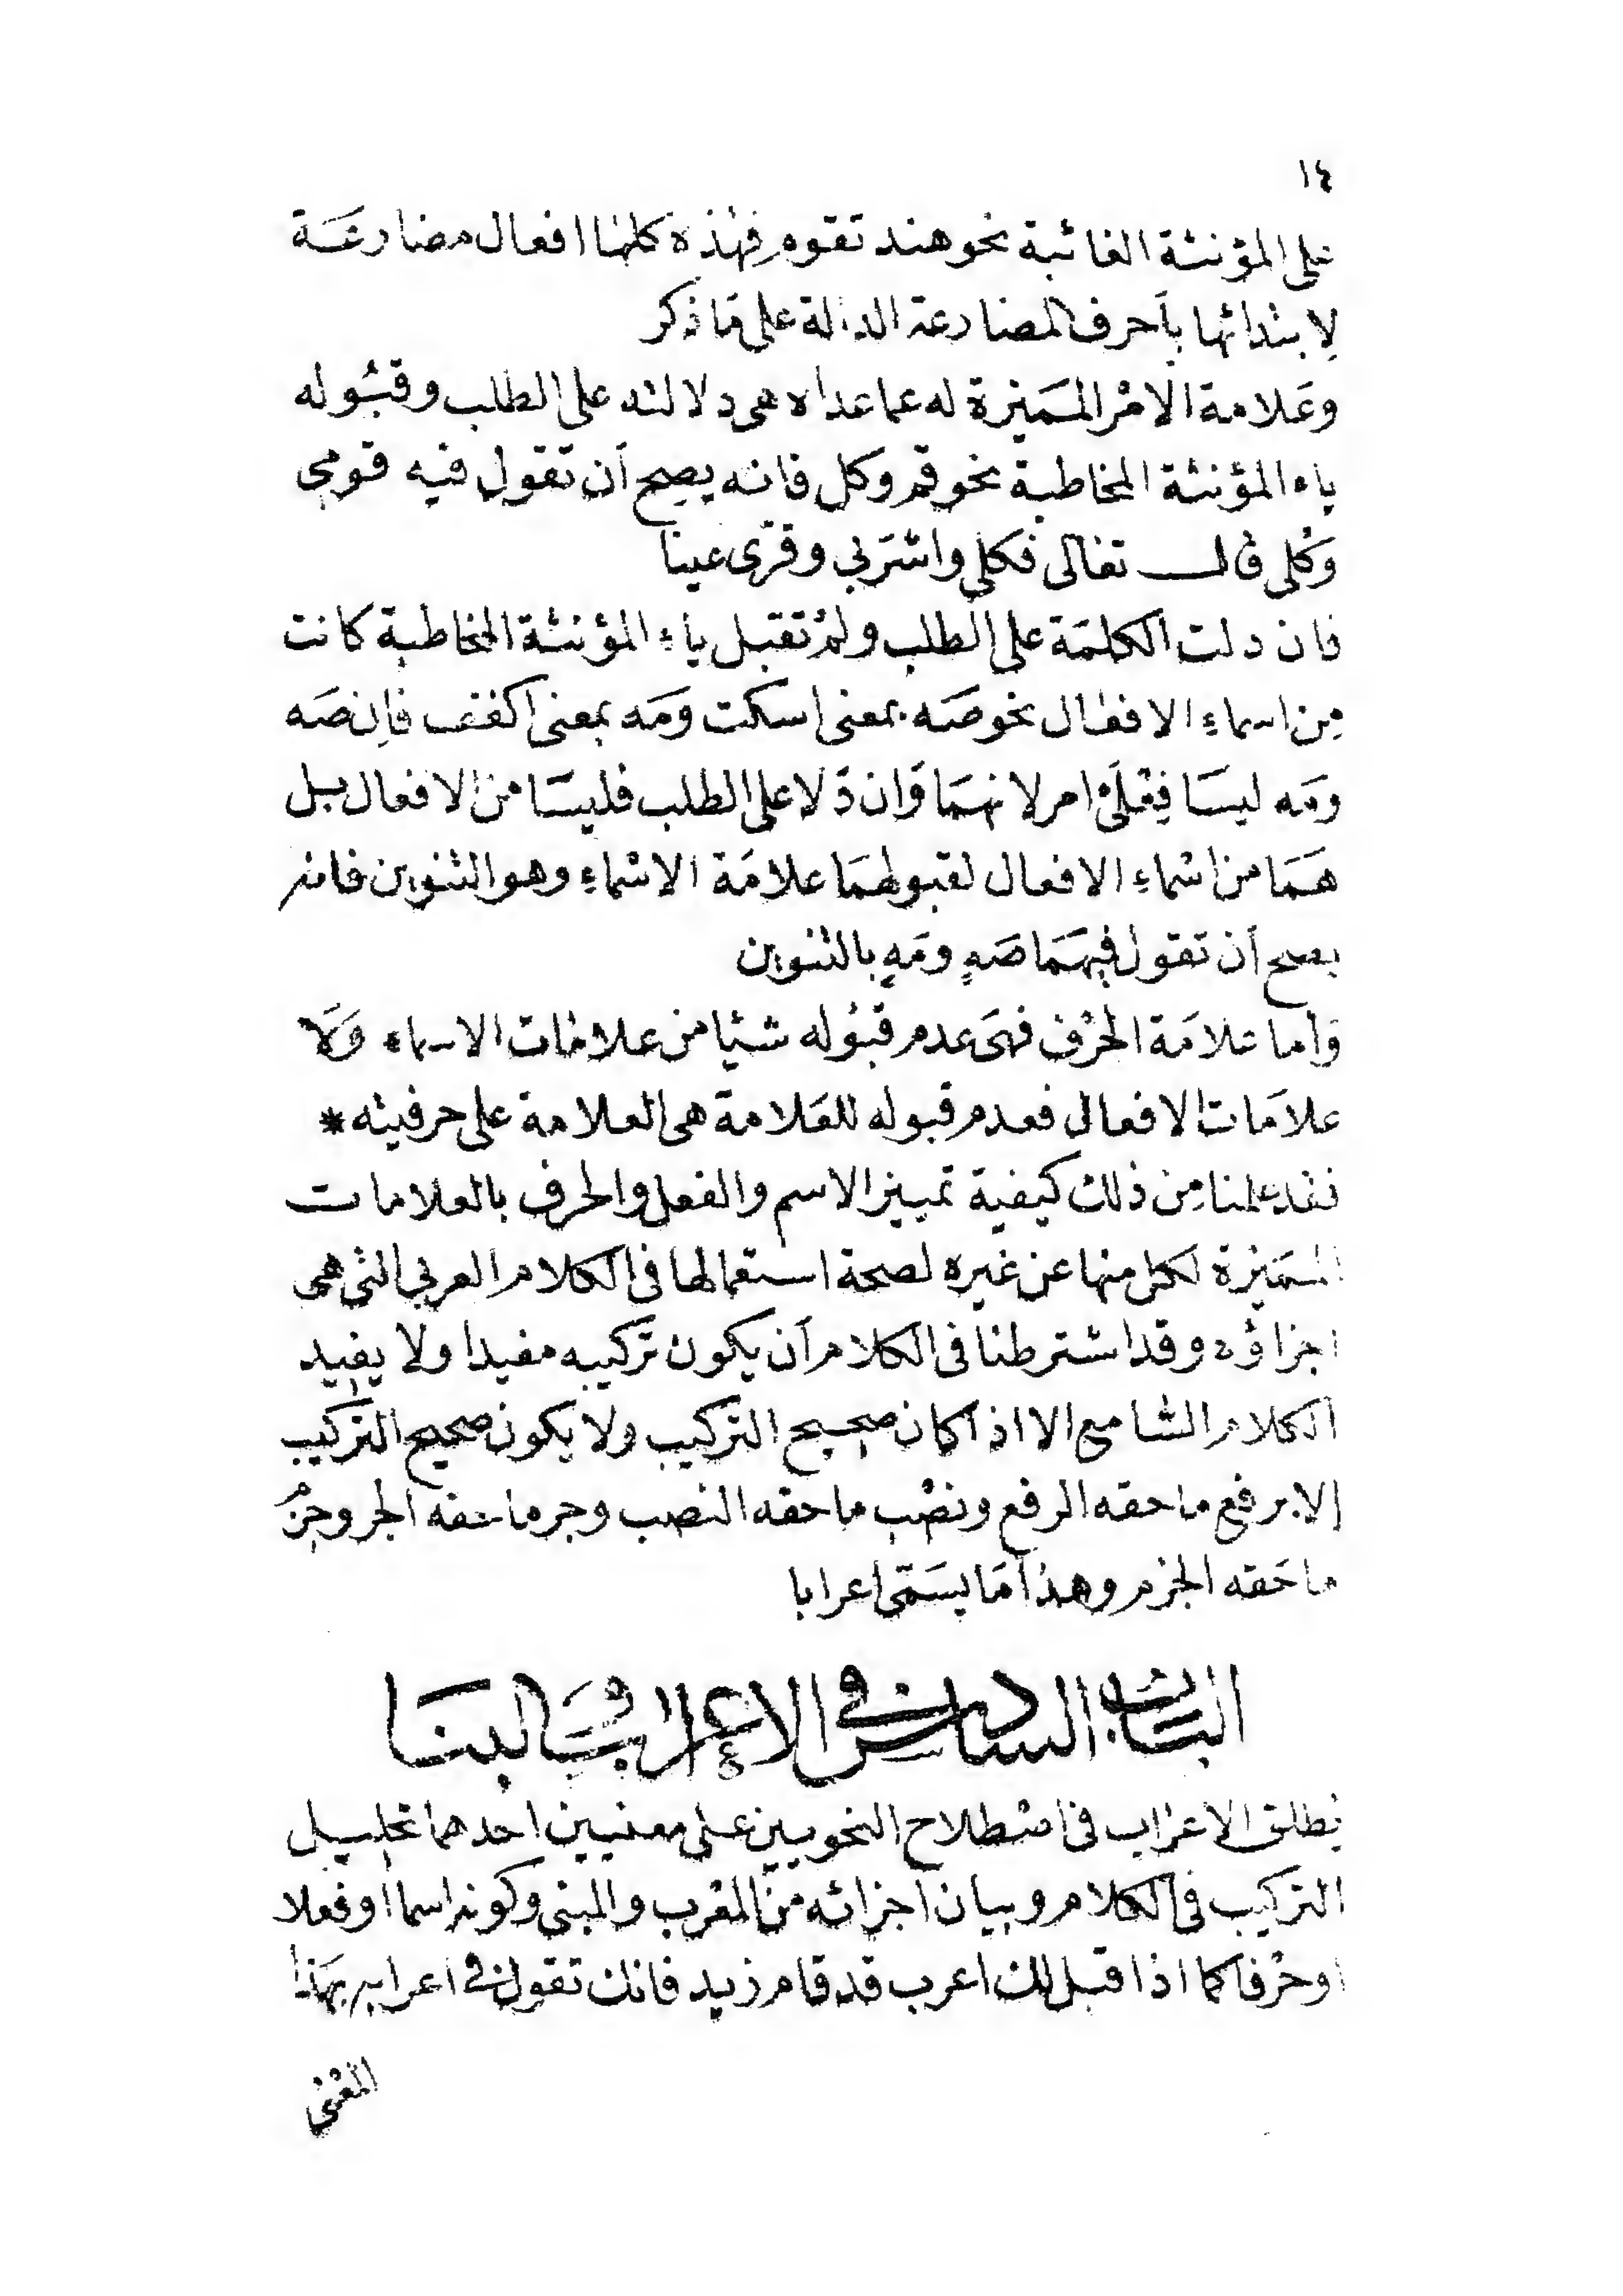 ١٤
على المؤنثة الغائبة نحو هند تقوم فهذه كلها افعال مضارعة
لابتدائها بأحرف المضارعة الدالة على ما ذكر
وعلامة الامر المميزة له عما عداه هى دلالته على الطلب وقبوله
ياء المؤنثة المخاطبة نحو قم وكل فانه يصح أن تقول فيه قومى
وكلى قال تعالى فكلى واشربى وقرى عينا
فان دلت الكلمة على الطلب ولم تقبل ياء المؤنثة المخاطبة كانت
من اسماء الافعال نحو صَه بمعنى اسكت ومَه بمعنى اكفف فإن صَه
ومَه ليسا فِعْلَىْ امر لانهما وان دَلا على الطلب فليسا من الافعال بل
هما من اسْماءِ الافعال لقبولهما علامة الاسْماءِ وهو التنوين فانه
يصح أن تقول فيهما صَهٍ ومَهٍ بالتنوين
وأما علامة الحرف فهى عدم قبوله شيئا من علامات الاسماء ولا
علامات الافعال فعدم قبوله للعلامة هى العلامة على حرفيته *
فقد علمنا مِن ذلك كيفية تمييز الاسم والفعل والحرف بالعلامات
المميزة لكل منها عن غيره لصحة استعمالها فى الكلام العربى التى هى
اجزاؤه وقد اشترطنا فى الكلام أن يكون تركيبه مفيدا ولا يفيد
الكلام السامع الا اذا كان صحيح التركيب ولا يكون صحيح التركيب
إلا برفع ما حقه الرفع ونصْب ما حقه النصب وجر ما حقه الجر وجزْم
ما حَقه الجزم وهذا مَا يسَمَّى اعرابا
الباب السادس فى الاعراب والبنا
يطلق الاعْراب فى اصْطلاح النحويين على معنيين احدهما تحليل
التركيب فى الكلام وبيان اجزائه من المعْرب والمبنى وكونه اسما اوفعلا
اوحرْفا كما اذا قيل لك اعرب قد قام زيد فانك تقول فى اعرابه بهَذا
المعْنى